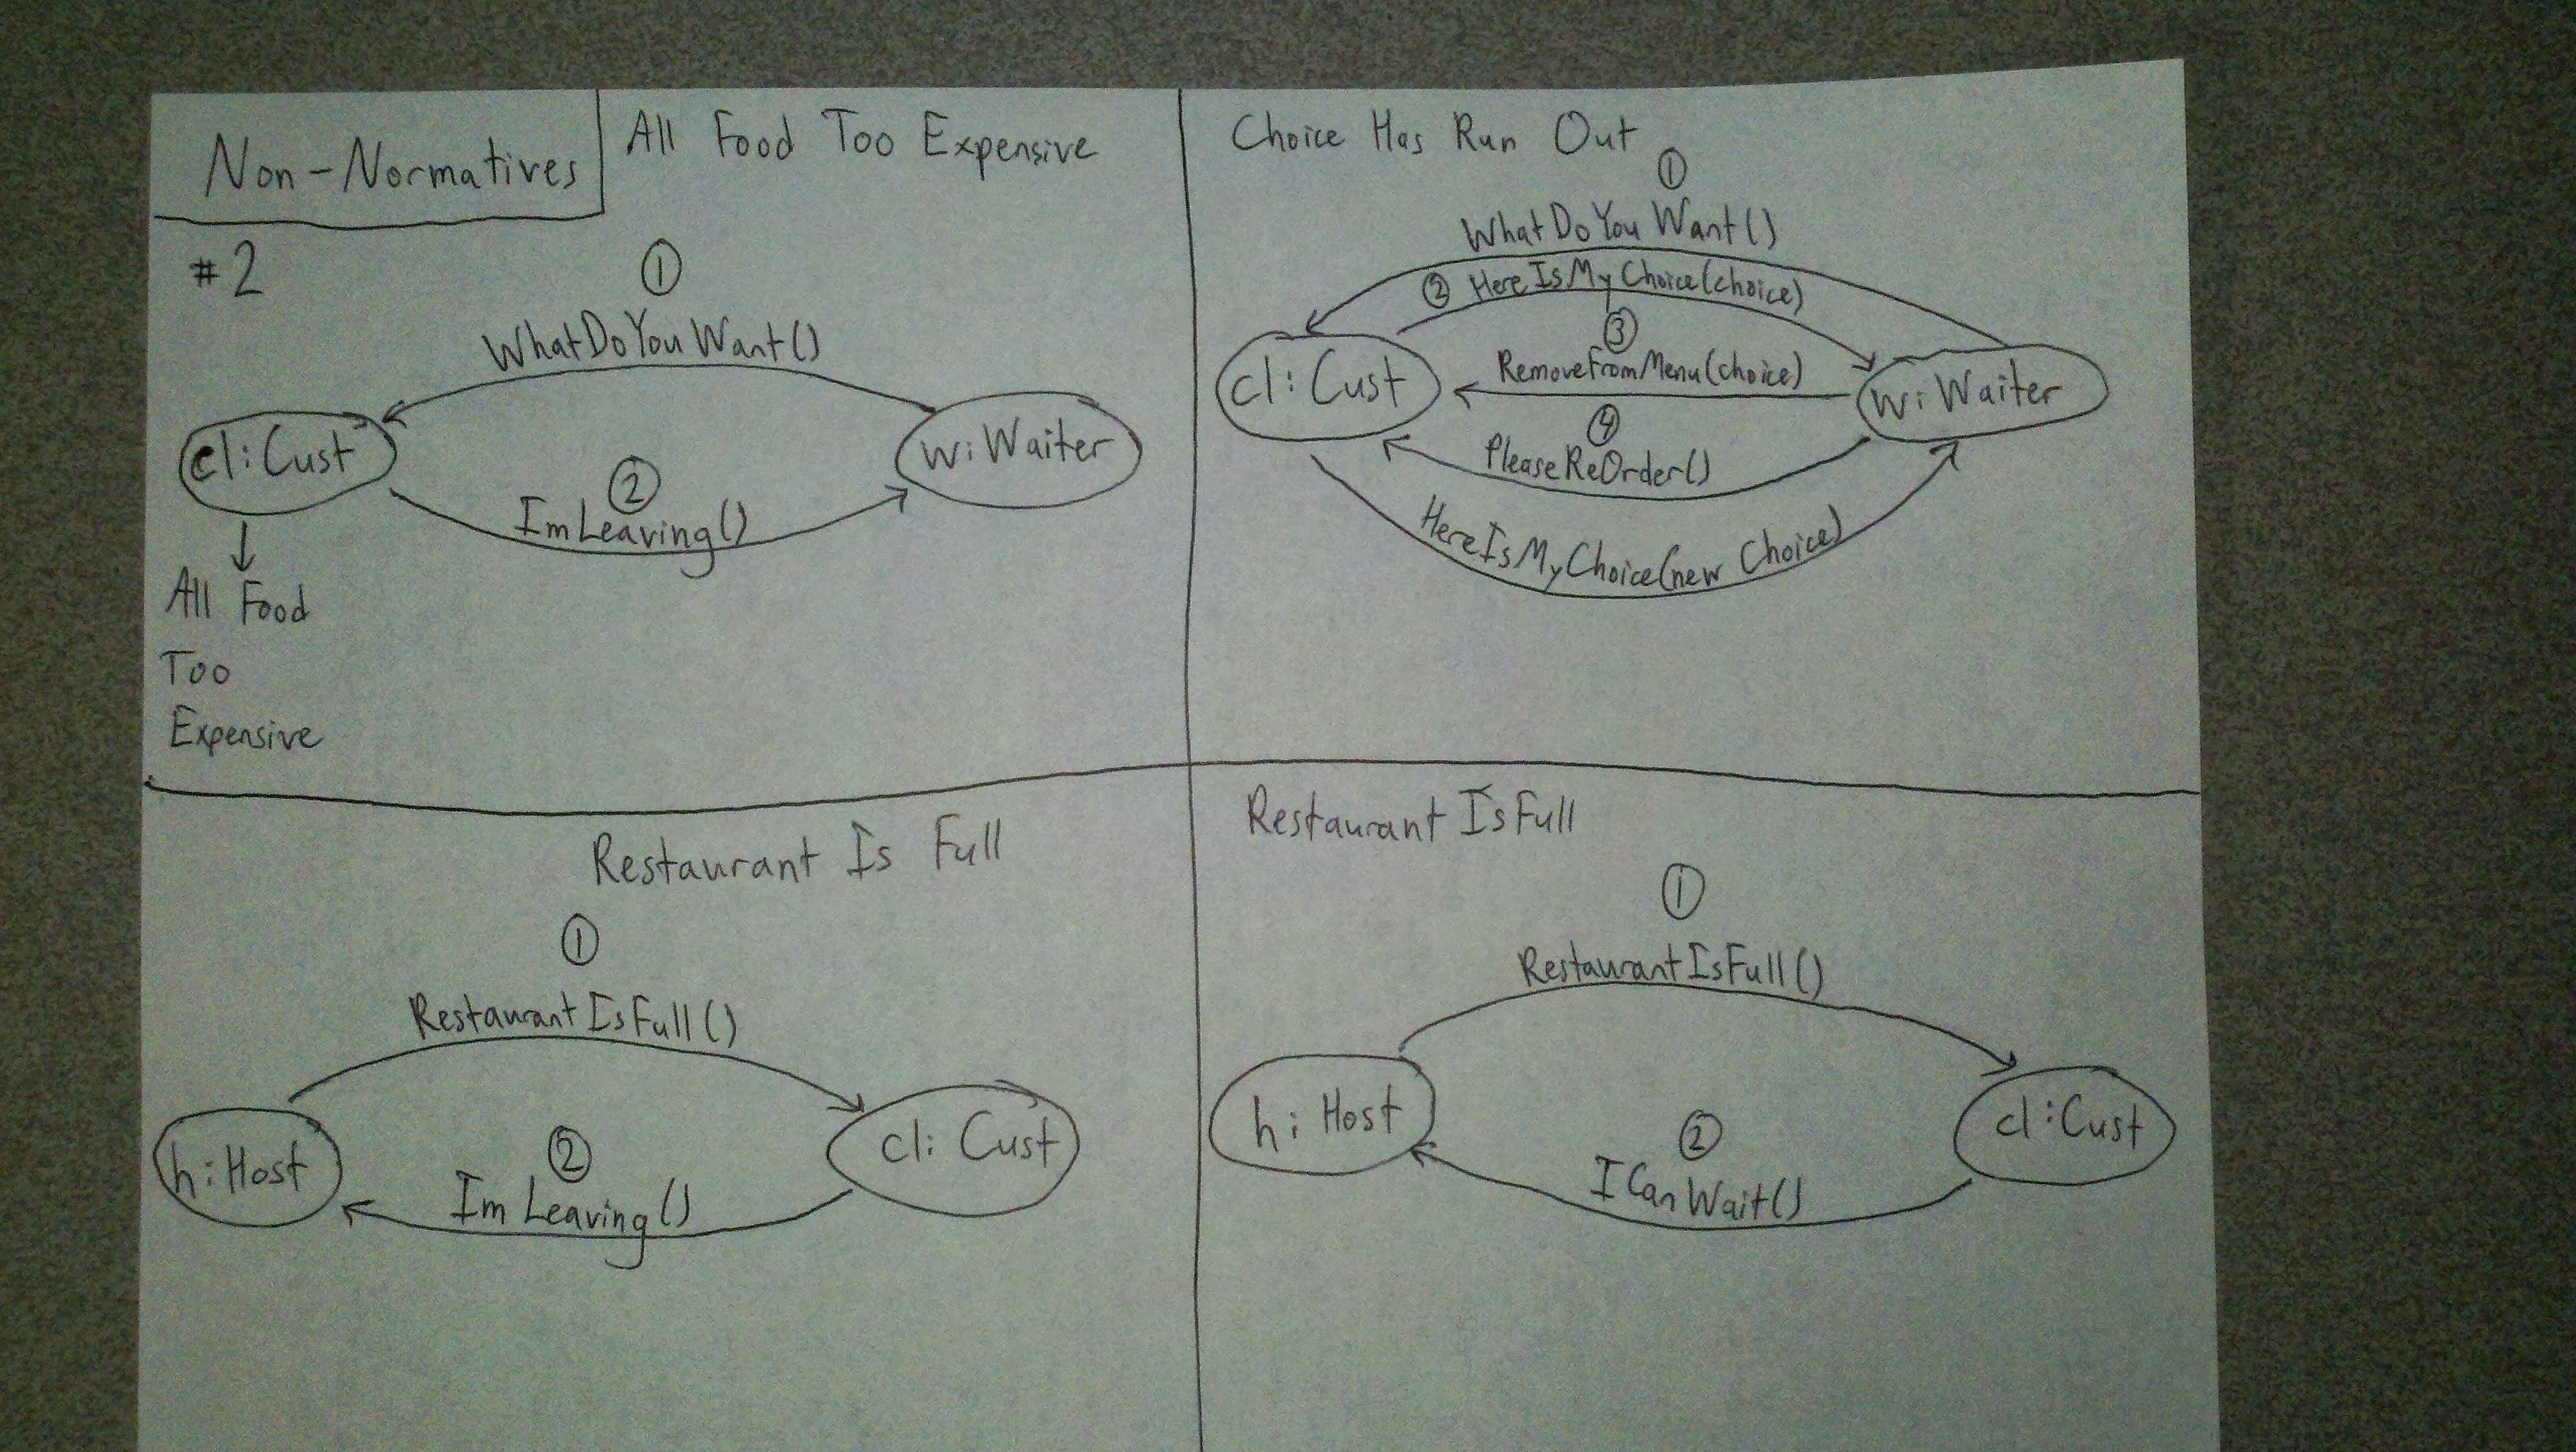 Non-Normatives
#2
All Food Too Expensive
①
WhatDoYouWant()
cl:Cust
w:Waiter
②
ImLeaving()
All Food
Too
Expensive
Choice Has Run Out
①
WhatDoYouWant()
② HereIsMyChoice(choice)
③
RemoveFromMenu(choice)
cl:Cust
w:Waiter
④
PleaseReOrder()
HereIsMyChoice(new Choice)
Restaurant Is Full
①
RestaurantIsFull()
h:Host
cl:Cust
②
ImLeaving()
Restaurant IsFull
①
RestaurantIsFull()
h:Host
cl:Cust
②
ICanWait()